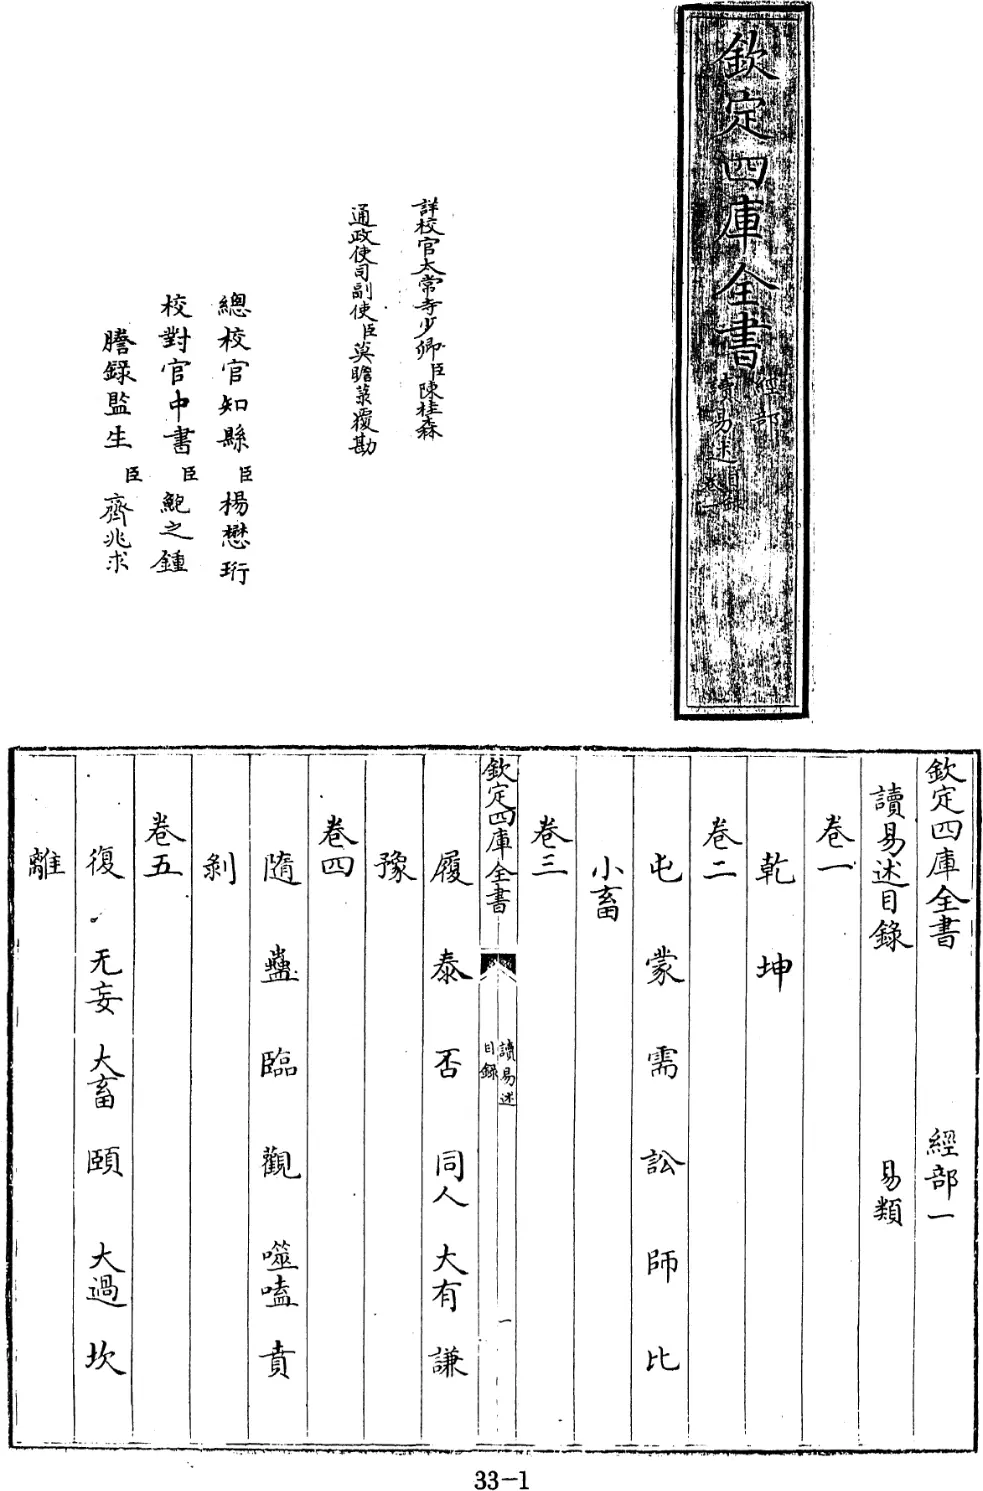 欽定四庫全書
經部
讀易述目錄
卷一
詳校官太常寺少卿臣陳桂森
通政使司副使臣莫瞻菉覆勘
總校官知縣臣楊懋珩
校對官中書臣鮑之鍾
謄錄監生臣齊兆求
欽定四庫全書 經部一
讀易述目錄 易類
卷一
乾 坤
卷二
屯 蒙 需 訟 師 比
小畜
卷三
欽定四庫全書
讀易述
目錄
一
履 泰 否 同人 大有 謙
豫
卷四
隨 蠱 臨 觀 噬嗑 賁
剝
卷五
復 无妄 大畜 頤 大過 坎
離
33-1